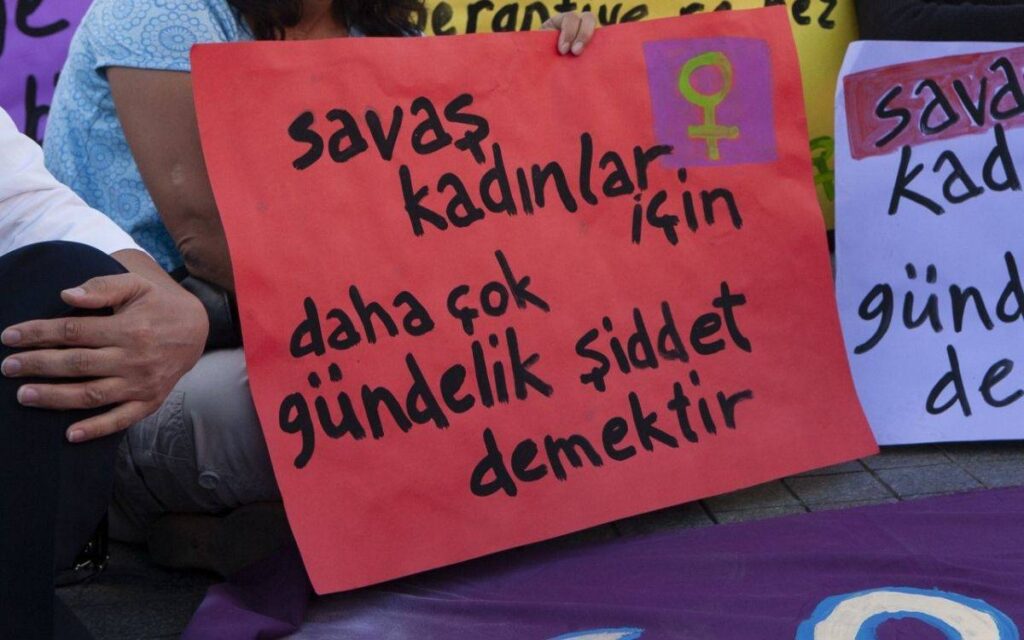 savaş
kadınlar
için
daha çok
gündelik şiddet
demektir
savaş
kadı
günd
de